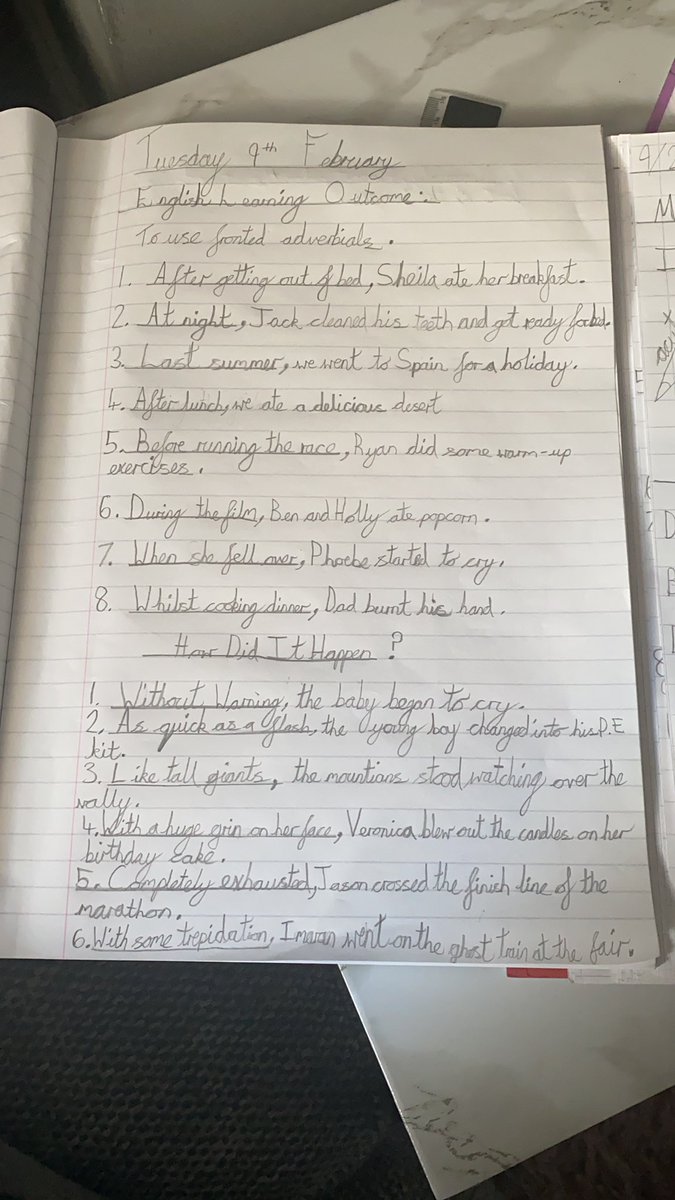 Tuesday 9th February
English Learning Outcome:
To use fronted adverbials.
1. After getting out of bed, Sheila ate her breakfast.
2. At night, Jack cleaned his teeth and got ready for bed.
3. Last summer, we went to Spain for a holiday.
4. After lunch, we ate a delicious desert
5. Before running the race, Ryan did some warm-up
exercises.
6. During the film, Ben and Holly ate popcorn.
7. When she fell over, Phoebe started to cry.
8. Whilst cooking dinner, Dad burnt his hand.
How Did It Happen?
1. Without Warning, the baby began to cry.
2. As quick as a flash, the young boy changed into his P.E
kit.
3. Like tall giants, the mountians stood watching over the
vally.
4. With a huge grin on her face, Veronica blew out the candles on her
birthday cake.
5. Completely exhausted, Jason crossed the finish line of the
marathon.
6. With some trepidation, Imran went on the ghost train at the fair.